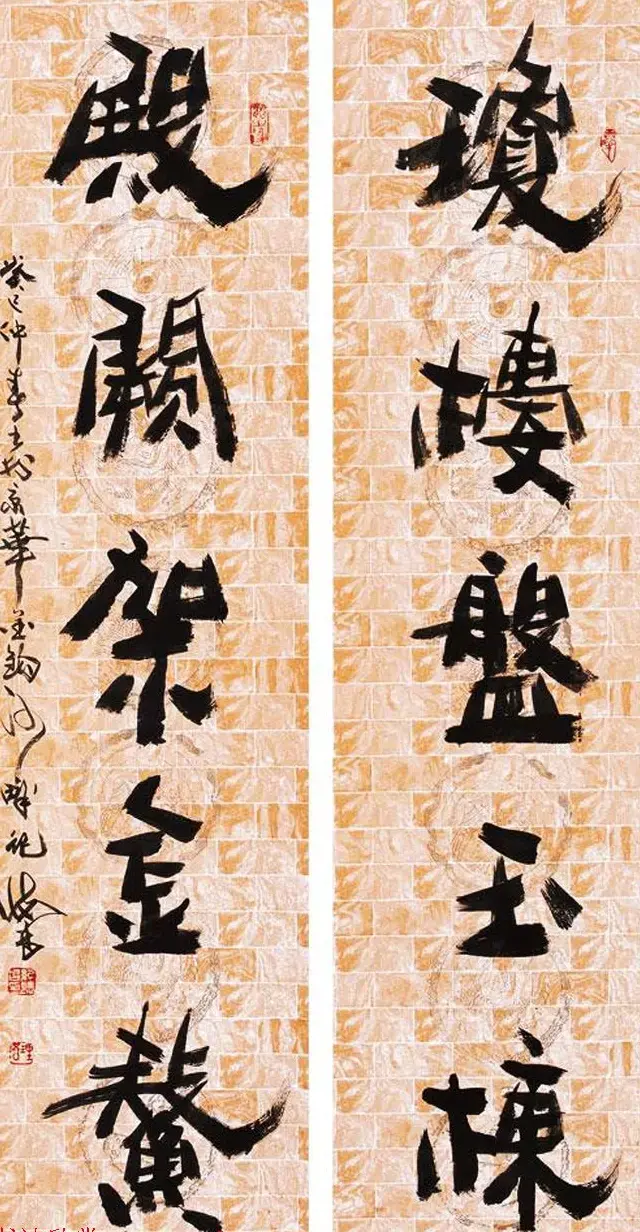 瓊樓盤玉棟
殿闕架金鰲
癸巳仲春於京華金鈎河畔